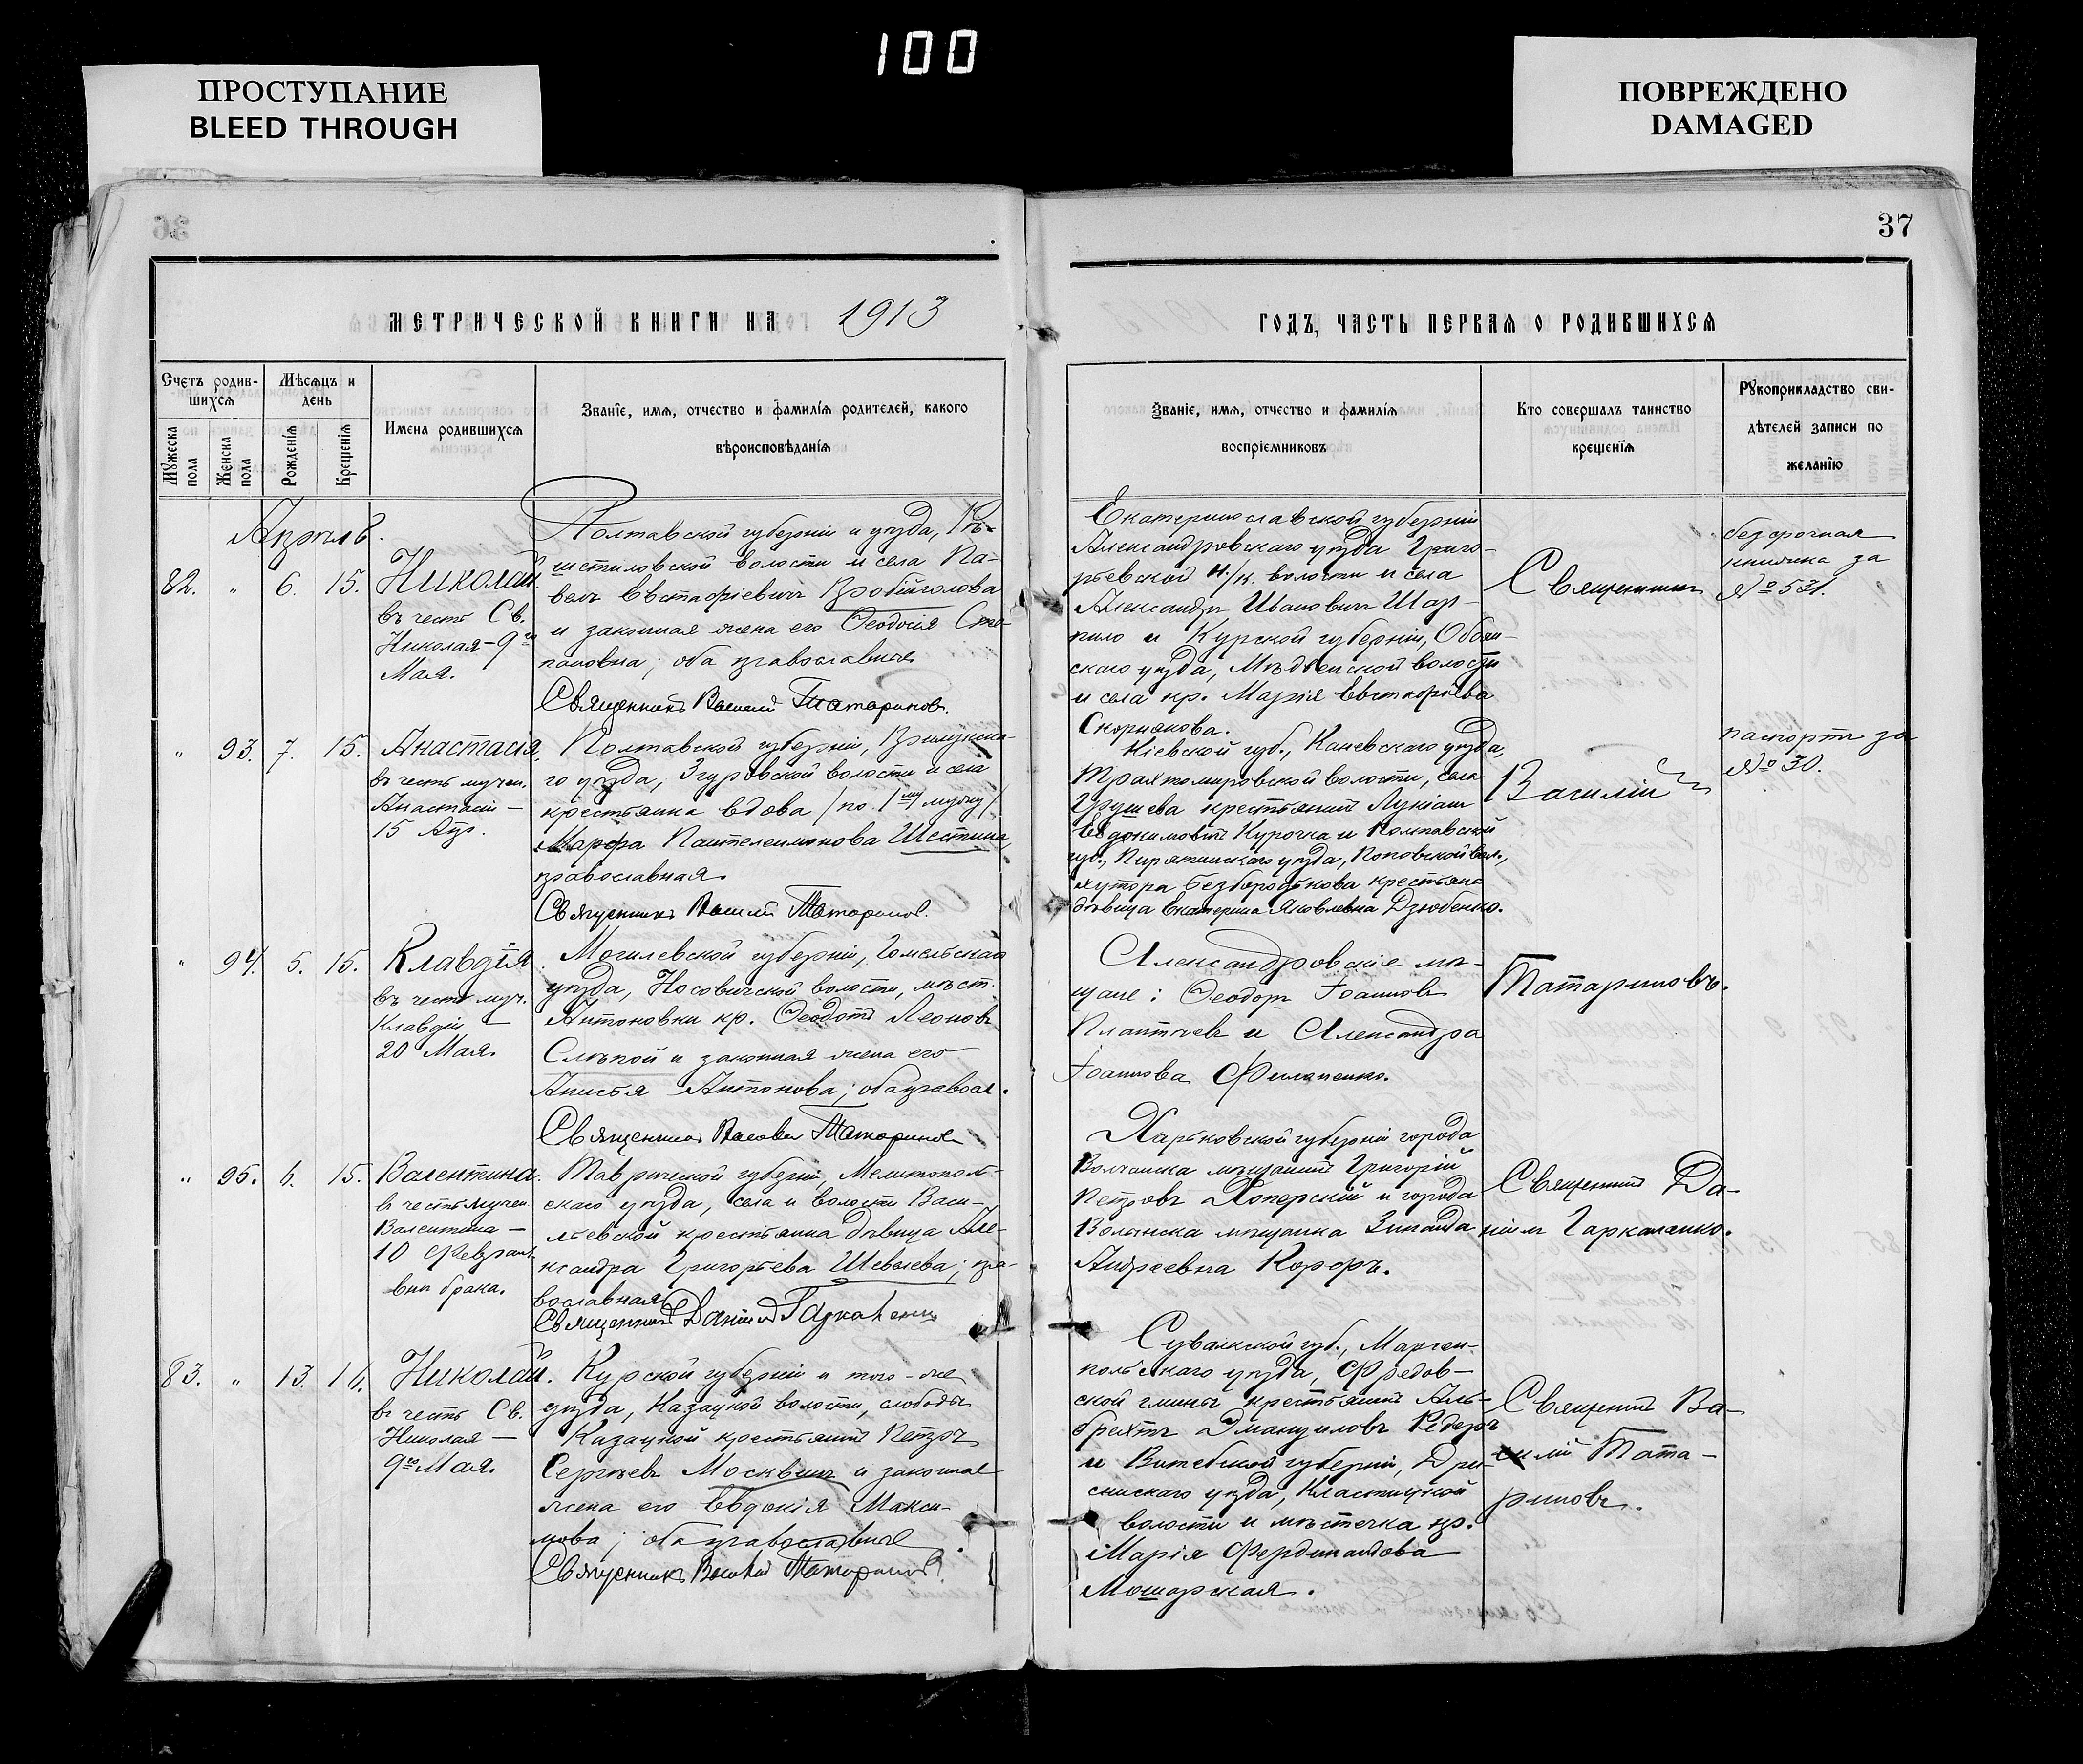 100
ПРОСТУПАНИЕ
BLEED THROUGH
ПОВРЕЖДЕНО
DAMAGED
36
37
МЕТРИЧЕСКОЙ КНИГИ НА 1913
ГОДЪ, ЧАСТЬ ПЕРВАЯ О РОДИВШИХСЯ
Счетъ родив-
шихся
Мѣсяцъ и
день
Мужеска
пола
Женска
пола
Рожденія
Крещенія
Имена родившихся
Званіе, имя, отчество и фамилія родителей, какого
вѣроисповѣданія
Званіе, имя, отчество и фамилія
воспріемниковъ
Кто совершалъ таинство
крещенія
Рукоприкладство сви-
дѣтелей записи по
желанію
Апрѣль.
82. " 6. 15.
Николай.
въ честь Св.
Николая – 9го
Мая.
Полтавской губерніи и уѣзда, Рѣ-
шетиловской волости и села Па-
велъ Евстафіевичъ
и законная жена его Ѳеодосія Сте-
пановна; оба православные
Священникъ Василій Татариновъ.
Екатеринославской губерніи
Александровскаго уѣзда Григо-
рьевской н/к. волости и села
Александръ Ивановичъ Шар-
пило и Курской губерніи, Обоян-
скаго уѣзда, Мѣдвенской волости
и села кр. Марія Евстафіева
Скорнякова.
Священникъ
безсрочная
книжка за
№ 531.
" 93. 7. 15.
Анастасія.
въ честь мучен.
Анастасіи –
15 Апр.
Полтавской губерніи, Прилукска-
го уѣзда, Згуровской волости и села
крестьянка вдова /по 1му мужу/
Марфа Пантелеимонова
православная.
Священникъ Василій Татариновъ.
Кіевской губ., Каневскаго уѣзда,
Трахтомировской волости, села
крестьянинъ Лукіанъ
Евдокимовъ Курочка и Полтавской
губ., Пирятинскаго уѣзда, Поповской вол.,
хутора Безбородькова крестьян.
дѣвица Екатерина Яковлевна Дзюбенко.
Василій
паспортъ за
№ 30.
" 94. 5. 15.
Клавдія.
въ честь муч.
Клавдіи –
20 Мая.
Могилевской губерніи, Гомельскаго
уѣзда, Носовичской волости, мѣст.
Антоновки кр. Ѳеодотъ Леоновъ
Слѣпой и законная жена его
Анисья Антонова; оба правосл.
Священникъ Василій Татариновъ
Александровскіе мѣ-
щане: Ѳеодоръ Іоанновъ
и Александра
Іоаннова Филопенко.
Татариновъ.
" 95. 6. 15.
Валентина.
въ честь мучен.
Валентина –
10 Феврал.
внѣ брака.
Таврической губерніи, Мелитополь-
скаго уѣзда, села и волости Васи-
льевской крестьянка дѣвица Але-
ксандра Григорьева Шевелева; пра-
вославная
Священникъ Даніилъ Гаркаленко
Харьковской губерніи города
Волчанска мѣщанинъ Григорій
Петровъ Хоперскій и города
Волчанска мѣщанка Зинаида
Андреевна Корфъ.
Священникъ Да-
ніилъ Гаркаленко.
83. " 13. 16.
Николай.
въ честь Св.
Николая –
9го Мая.
Курской губерніи и того-же
уѣзда, Казацкой волости, слободы
Казацкой крестьянинъ Петръ
Сергѣевъ Москвинъ и законная
жена его Евдокія Макси-
мова; оба православные
Священникъ Василій Татариновъ
Сувалкской губ., Маріам-
польскаго уѣзда, Фредов-
ской гмины крестьянинъ Аль-
брехтъ Эмануиловъ Редеръ
и Витебской губерніи, Дри-
сенскаго уѣзда, Кластицкой
волости и мѣстечка кр.
Марія Фердинандова
Мошарская.
Священникъ Ва-
силій Тата-
риновъ.